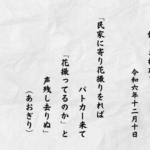 令和六年十二月十日
「民家に寄り花撮りをれば
パトカー来て
「花撮ってるのか」と
声残し去りぬ」
(あおぎり)